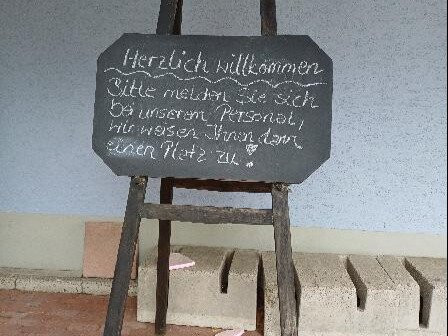 Herzlich willkommen
Bitte melden Sie sich
bei unserem Personal,
wir weisen Ihnen dann
einen Platz zu!